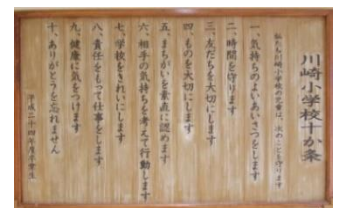 川崎小学校十か条
私たち川崎小学校の児童は、次のことを守ります
一、気持ちのよいあいさつをします
二、時間を守ります
三、友だちを大切にします
四、ものを大切にします
五、まちがいを素直に認めます
六、相手の気持ちを考えて行動します
七、学校をきれいにします
八、責任をもって仕事をします
九、健康に気をつけます
十、ありがとうを忘れません
平成二十四年度卒業生